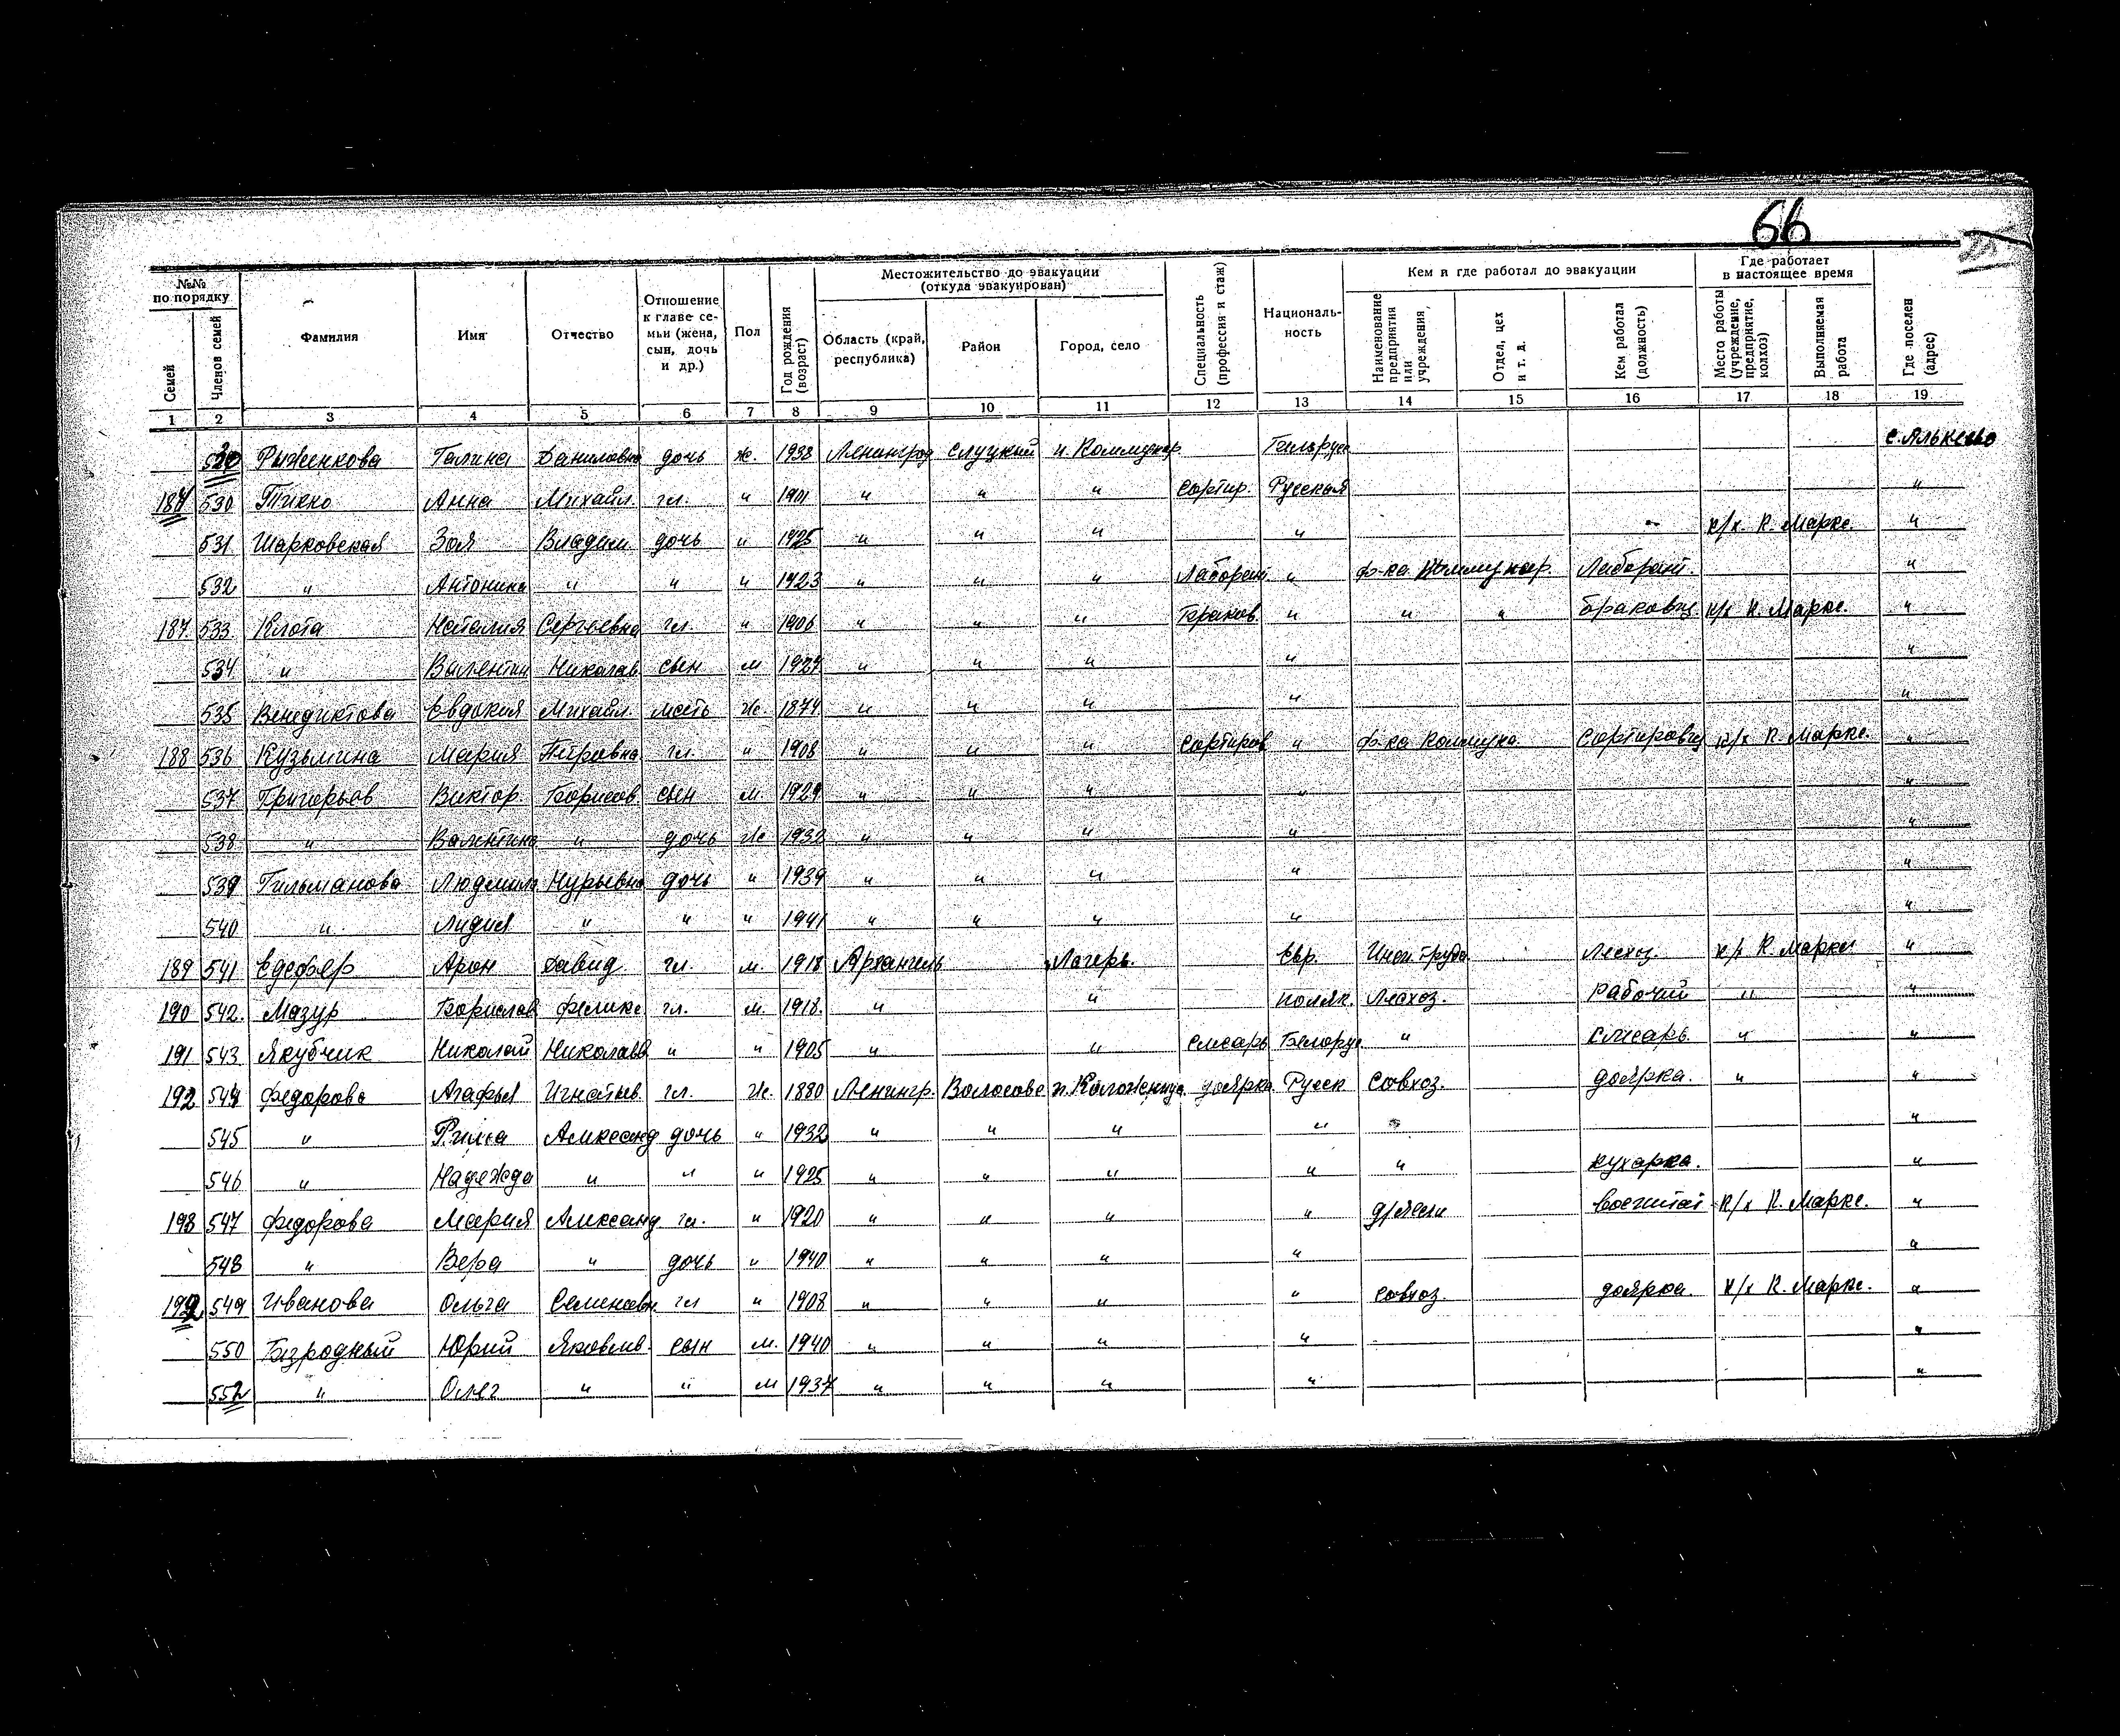 66
№№ по порядку
Семей
Членов семей
Фамилия
Имя
Отчество
Отношение к главе семьи (жена, сын, дочь и др.)
Пол
Год рождения (возраст)
Местожительство до эвакуации (откуда эвакуирован)
Область (край, республика)
Район
Город, село
Специальность (профессия и стаж)
Националь-ность
Кем и где работал до эвакуации
Наименование предприятия или учреждения
Отдел, цех и т. д.
Кем работал (должность)
Где работает в настоящее время
Место работы (учреждение, предприятие, колхоз)
Выполняемая работа
Где поселен (адрес)
1 2 3 4 5 6 7 8 9 10 11 12 13 14 15 16 17 18 19
Рыженкова Галина Даниловна дочь ж. 1938 Ленинград Слуцкий п. Коммунар
530 Тикко Анна Михайл. гл. " 1901 " " " Сортир. Русская "
531 Шарковская Зоя Владим. дочь " 1925 " " " " к/х. К. Маркс. "
532 " Антонина " " " 1923 " " " Лаборант " ф-ка Коммунар. Лаборант. "
187 533 Клота Наталия Сергеевна гл. " 1906 " " " Браков. " " " браковщ. к/х К. Маркс. "
534 " Валентин Николав сын м 1927 " " " " "
535 Венедиктова Евдокия Михайл. мать ж. 1874 " " " " "
188 536 Кузьмина Мария Петровна гл. " 1908 " " " Сортиров " ф-ка Коммуна. Сортировщ к/х К. Маркс. "
537 Григорьев Виктор. Борисов сын м. 1929 " " " " "
538 " Валентина " дочь ж 1932 " " " " "
539 Гильманова Людмила Нурывна дочь " 1939 " " " " "
540 " Лидия " " " 1941 " " " " "
189 541 Арон Давид гл. м. 1918 Архангель Лагерь. Евр. Лесхоз. к/х К. Маркс "
190 542. Мазур Борислав Феликс гл. м. 1918. " " поляк. Лесхоз. Рабочий " "
191 543 Якубчик Николай Николаев " " 1905 " " Слесарь Белорус. " Слесарь. " "
192 544 Федорова Агафья Игнатьев. гл. ж. 1880 Ленингр. Волосове п. Каложеница доярка Русск Совхоз. доярка. " "
545 " Римма Александ дочь " 1932 " " " " "
546 " Надежда " " " 1925 " " " " " кухарка. "
193 547 Федорова Мария Александ гл. " 1920 " " " " д/ясли воспитат к/х К. Маркс. "
548 " Вера " дочь " 1940 " " " " "
549 Иванова Ольга Семеновн гл " 1908 " " " " совхоз. доярка. к/х К. Маркс. "
550 Безродный Юрий Яковлев. сын м. 1940 " " " " "
552 " Олег " " м 1937 " " " " "